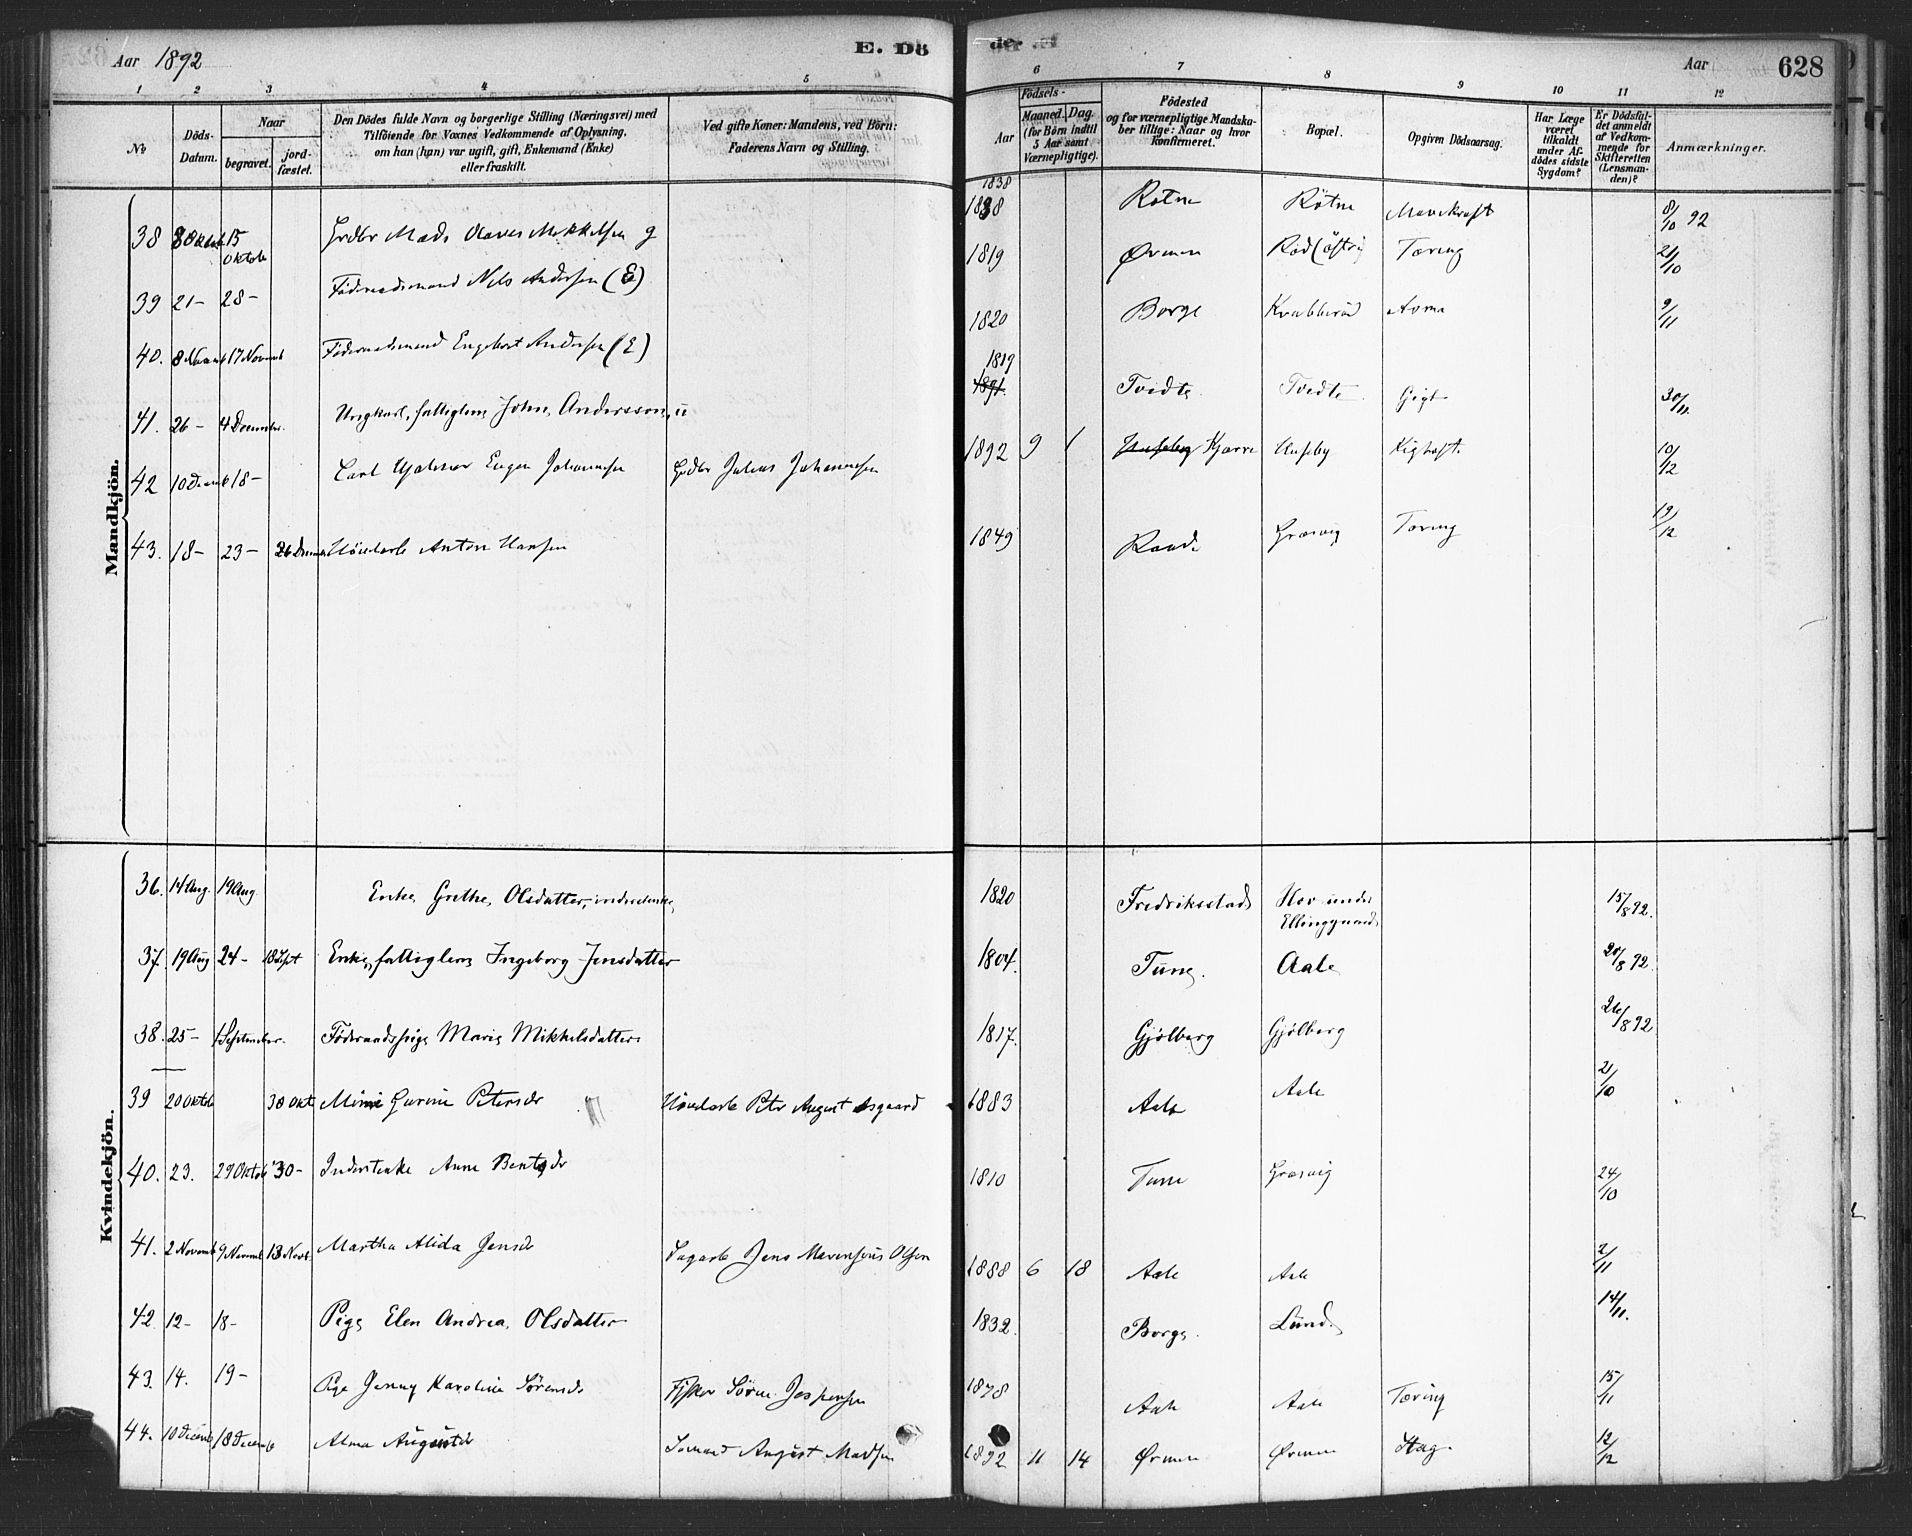 Aar 1892
E. Dö
de
Aar
628
1 2 3 4 5 6 7 8 9 10 11 12
No
Döds-Datum.
Naar
begravet.
jord-fæstet.
Den Dödes fulde Navn og borgerlige Stilling (Næringsvei) med
Tilföiende for Voxnes Vedkommende af Oplysning,
om han (hun) var ugift, gift, Enkemand (Enke)
eller fraskilt.
Ved gifte Koner: Mandens, ved Börn:
Faderens Navn og Stilling.
Födsels-
Aar
Maaned. Dag.
(for Börn indtil
5 Aar samt
Værnepligtige).
Födested
og for værnepligtige Mandska-
ber tillige: Naar og hvor
konfirmeret.
Bopæl.
Opgiven Dödsaarsag.
Har Læge
været
tilkaldt
under Af-
dödes sidste
Sygdom?
Er Dödsfal-
det anmeldt
af Vedkom-
mende for
Skifteretten
(Lensman-
den)?
Anmærkninger.
Mandkjön.
38 8 Oktob 15 Oktob Grdbr Mads Olaves Mikkelsen g 1838 1838 Røtne Røtne Mavekræft 8/10 92
39 21- 28- Föderaadsmand Nils Andersen (E) 1819 Ørmen Rød (østri) Tæring 21/10
40. 8 Novemb 17 Novemb Föderaadsmand Engebret Andersen (E) 1820 Borge Krabberød 9/11
41. 26- 4 December. Ungkarl, fattiglem John Andersson, u 1819 Tvedte Tvedte Gigt 30/11
42 10 Decemb 18- Carl Hjalmar Eugen Johannesen Grdbr Julius Johannesen 1892 9 1 Huseby Kjærre Huseby Kighoste 10/12
43. 18- 23- 26 Decemb Höiedarb Anton Hansen 1849 Raade Græsvig Tæring 19/12
Kvindekjön.
36. 14 Aug. 19 Aug. Enke Grethe Olsdatter, inderstenke, 1820 Fredriksstad Hov under Elinggaard, 15/8 92.
37. 19 Aug 24- 18 Sept Enke, fattiglem Ingeborg Jensdatter 1804. Tune. Aale 20/8 92.
38. 25- 1 September. Föderaadspige Marie Mikkelsdatter 1817. Gjölberg Gjölberg 26/8 92
39 20 Oktob 30 Okt Mimi Gurine Petersdr Höiedarb Petr August Asgaard 1883 Aale Aale 21/10
40. 23. 29 Oktob 30- Inderstenke Anne Bentsdr 1810 Tune Græsvig 24/10
41. 2 Novemb 9 Novemb 13 Novb. Martha Alida Jensdr Sagarb Jens Marensius Olsen 1888 6 18 Aale Aale 2/11
42. 12- 18- Pige Elen Andrea Olsdatter 1832. Borge. Lund. 14/11.
43. 14. 19- Pige Jenny Karoline Sörensdr Fisker Sören Jespersen 1878 Aale Aale Tæring 15/11
44. 10 Decemb 18 Decemb Alma Augustdr Sömand August Madsen 1892 11 14 Ørmen Ørmen Slag. 12/12